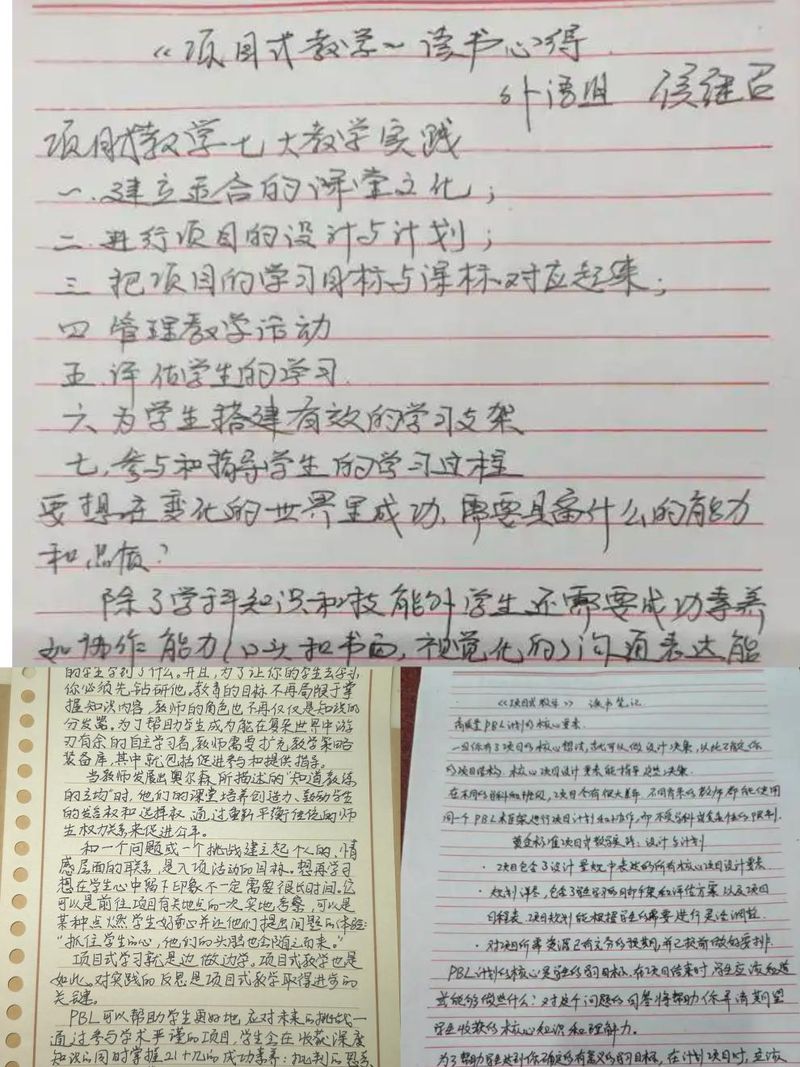 《项目式教学～读书心得
外语组 侯继召
项目式教学七大教学实践
一.建立适合的课堂文化；
二.进行项目的设计与计划；
三 把项目的学习目标与课标对应起来；
四 管理教学活动
五.评估学生的学习.
六 为学生搭建有效的学习支架
七.参与和指导学生的学习过程
要想在变化的世界里成功、需要具备什么的能力
和品质？
除了学科知识和技能外学生还需要成功素养
如协作能力(口头和书面,视觉化的)沟通表达能
的学生学到了什么。并且,为了让你的学生去学习,
你必须先钻研他。教育的目标不再局限于掌
握知识内容,教师的角色也不再仅仅是知识的
分发器。为了帮助学生成为能在复杂世界中游
刃有余的自主学习者,教师需要扩充教学策略
装备库,其中就包括促进参与和提供指导。
当教师发展出奥尔森所描述的"知道教练
的主场"时,他们的课堂培养创造力、鼓励学生
的发言权和选择权,通过重新平衡传统的师
生权力关系来促进公平。
和一个问题或一个挑战建立起个人的、情
感层面的联系,是入项活动的目标。想再学习
想在学生心中留下印象不一定需要很长时间。它
可以是前往项目有关地点的一次实地考察,可以是
某种点燃学生好奇心并让他们提出问题的体验:
"抓住学生的心,他们的头脑也会随之而来。"
项目式学习就是边做边学。项目式教学也是
如此。对实践的反思是项目式教学取得进步的
关键。
PBL可以帮助学生更好地应对未来的挑战—
通过参与学术严谨的项目,学生会在收获深度
知识的同时掌握21世纪的成功素养:批判的思考
《项目式教学》 读书笔记
高质量PBL计划的核心要素.
一旦你有了项目的核心想法,就可以做设计决策,从他
的项目结构.核心项目设计要素能指导这些决策.
在不同的学科和班级,项目会有很大差异.不同背景的教师都能使用
同一个PBL来
黄金标准项目式教学实践:设计与计划
· 项目包含了设计量规中表述的所有核心项目设计要素.
· 规划详尽,包含了学生学习的脚手架和评估方案以及项目
日程表.项目规划能根据学生的需要进行灵活调整.
· 对项目所需资源已有充分的预期,并已提前做好安排.
PBL计划的核心是学生的学习目标.在项目结束时学生应该知道
或能够做些什么?对这个问题的回答将帮助你弄清期望
学生收获的核心知识和理解力.
为了帮助学生达到你确定的有意义的学习目标,在计划项目时,应该